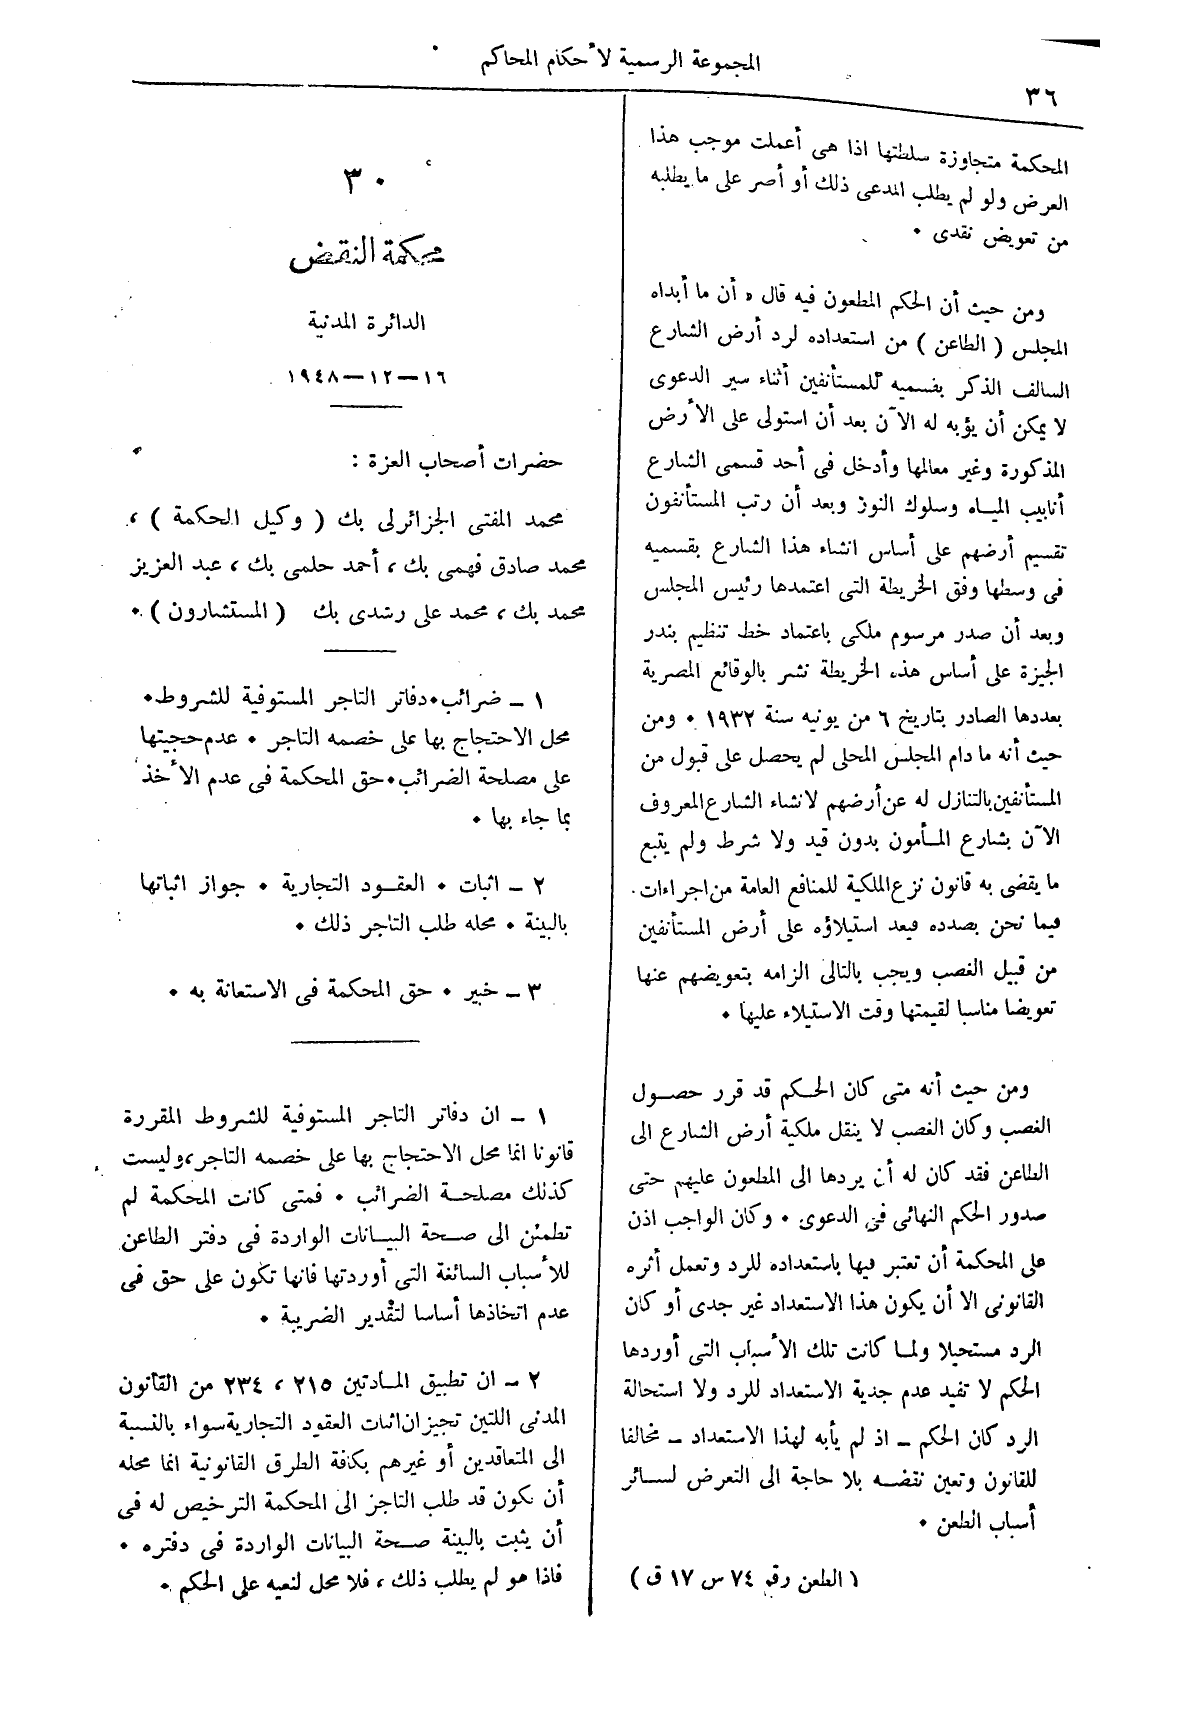 المجموعة الرسمية لأحكام المحاكم
٣٦
المحكمة متجاوزة سلطتها اذا هى أعملت موجب هذا
العرض ولو لم يطلب المدعى ذلك أو أصر على ما يطلبه
من تعويض نقدى ٠
ومن حيث أن الحكم المطعون فيه قال « أن ما أبداه
المجلس ( الطاعن ) من استعداده لرد أرض الشارع
السالف الذكر بقسميه للمستأنفين أثناء سير الدعوى
لا يمكن أن يؤبه له الآن بعد أن استولى على الأرض
المذكورة وغير معالمها وأدخل فى أحد قسمى الشارع
أنابيب المياه وسلوك النور وبعد أن رتب المستأنفون
تقسيم أرضهم على أساس انشاء هذا الشارع بقسميه
فى وسطها وفق الخريطة التى اعتمدها رئيس المجلس
وبعد أن صدر مرسوم ملكى باعتماد خط تنظيم بندر
الجيزة على أساس هذه الخريطة نشر بالوقائع المصرية
بعددها الصادر بتاريخ ٦ من يونيه سنة ١٩٣٢ ٠ ومن
حيث أنه ما دام المجلس المحلى لم يحصل على قبول من
المستأنفين بالتنازل له عن أرضهم لانشاء الشارع المعروف
الآن بشارع المأمون بدون قيد ولا شرط ولم يتبع
ما يقضى به قانون نزع الملكية للمنافع العامة من اجراءات
فيما نحن بصدده فيعد استيلاؤه على أرض المستأنفين
من قبيل الغصب ويجب بالتالى الزامه بتعويضهم عنها
تعويضا مناسبا لقيمتها وقت الاستيلاء عليها ٠
ومن حيث أنه متى كان الحكم قد قرر حصول
الغصب وكان الغصب لا ينقل ملكية أرض الشارع الى
الطاعن فقد كان له أن يردها الى المطعون عليهم حتى
صدور الحكم النهائى فى الدعوى ٠ وكان الواجب اذن
على المحكمة أن تعتبر فيها باستعداده للرد وتعمل أثره
القانونى الا أن يكون هذا الاستعداد غير جدى أو كان
الرد مستحيلا ولما كانت تلك الأسباب التى أوردها
الحكم لا تفيد عدم جدية الاستعداد للرد ولا استحالة
الرد كان الحكم ــ اذ لم يأبه لهذا الاستعداد ــ مخالفا
للقانون وتعين نقضه بلا حاجة الى التعرض لسائر
أسباب الطعن ٠
( الطعن رقم ٧٤ س ١٧ ق )
٣٠
محكمة النقض
الدائرة المدنية
١٦ــ١٢ــ١٩٤٨
حضرات أصحاب العزة :
محمد المفتى الجزائرلى بك ( وكيل المحكمة ) ،
محمد صادق فهمى بك ، أحمد حلمى بك ، عبد العزيز
محمد بك ، محمد على رشدى بك ( المستشارون ) ٠
١ ــ ضرائب ٠ دفاتر التاجر المستوفية للشروط ٠
محل الاحتجاج بها على خصمه التاجر ٠ عدم حجيتها
على مصلحة الضرائب ٠ حق المحكمة فى عدم الأخذ
بما جاء بها ٠
٢ ــ اثبات ٠ العقود التجارية ٠ جواز اثباتها
بالبينة ٠ محله طلب التاجر ذلك ٠
٣ ــ خبير ٠ حق المحكمة فى الاستعانة به ٠
١ ــ ان دفاتر التاجر المستوفية للشروط المقررة
قانونا انما محل الاحتجاج بها على خصمه التاجر ، وليست
كذلك مصلحة الضرائب ٠ فمتى كانت المحكمة لم
تطمئن الى صحة البيانات الواردة فى دفتر الطاعن
للأسباب السائغة التى أوردتها فانها تكون على حق فى
عدم اتخاذها أساسا لتقدير الضريبة ٠
٢ ــ ان تطبيق المادتين ٢١٥ ، ٢٣٤ من القانون
المدنى اللتين تجيزان اثبات العقود التجارية سواء بالنسبة
الى المتعاقدين أو غيرهم بكافة الطرق القانونية انما محله
أن يكون قد طلب التاجر الى المحكمة الترخيص له فى
أن يثبت بالبينة صحة البيانات الواردة فى دفتره ٠
فاذا هو لم يطلب ذلك ، فلا محل لنعيه على الحكم ٠